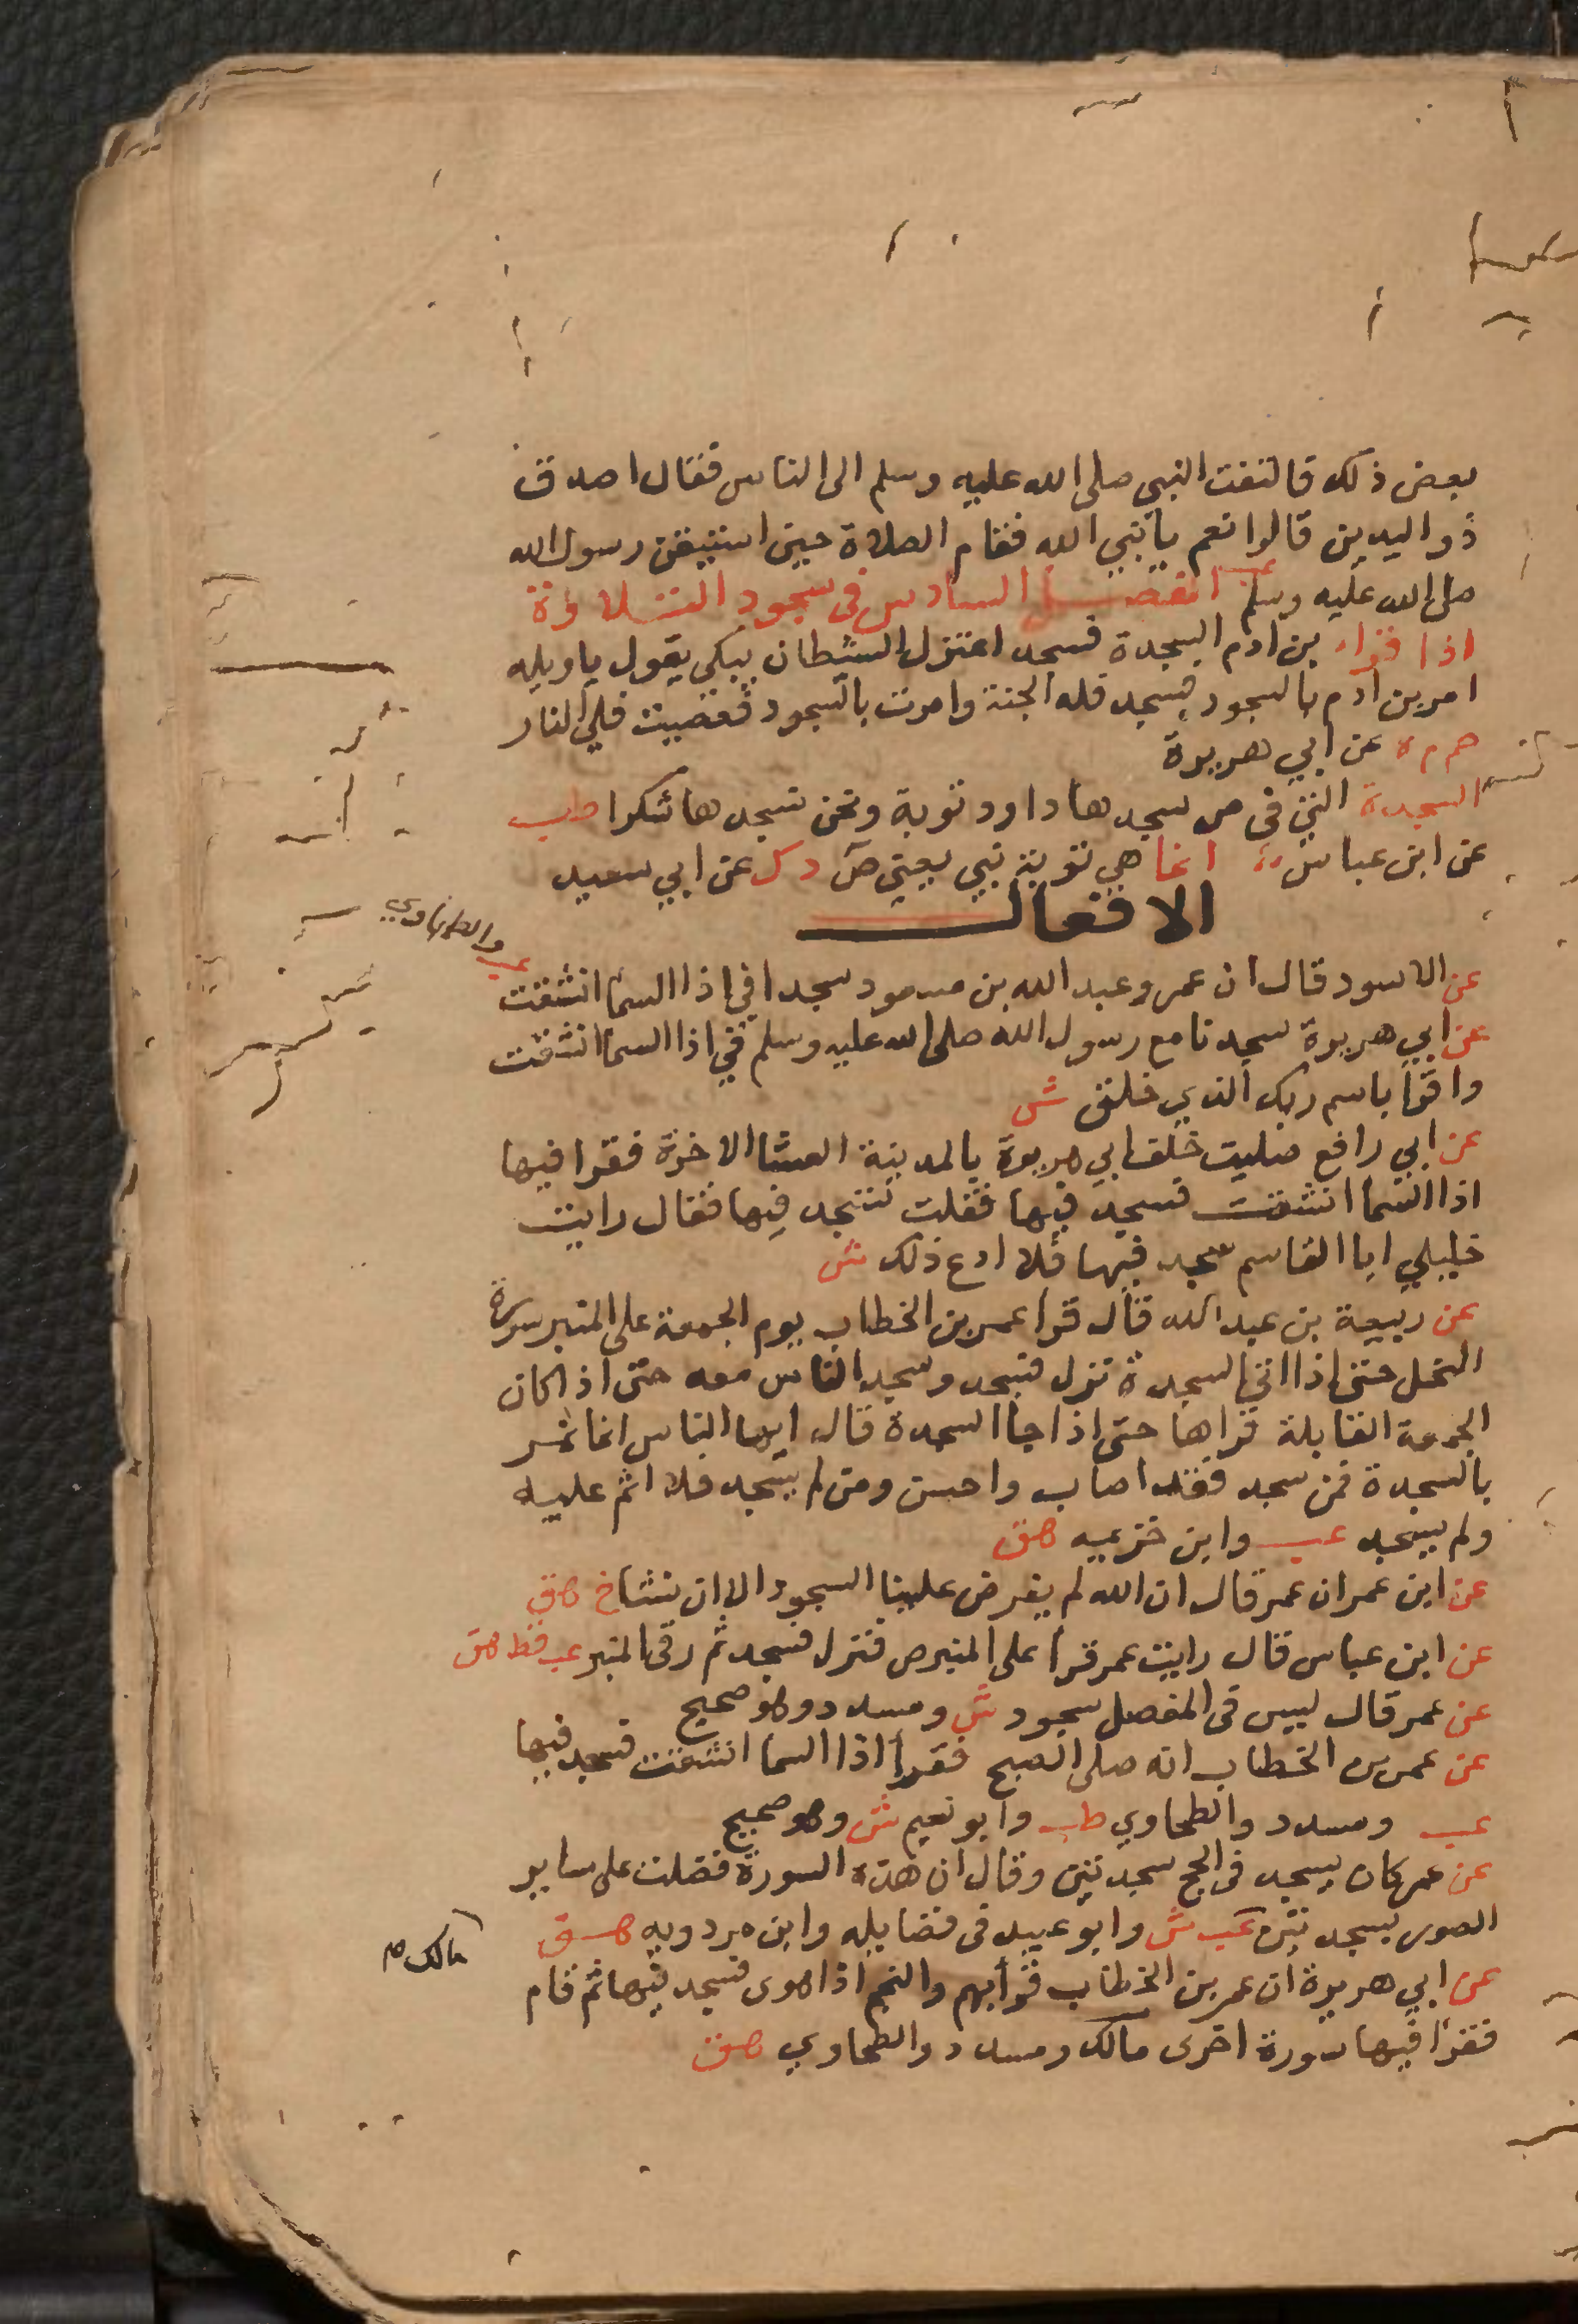 بعض ذلك فالتفت النبي صلى الله عليه وسلم الى الناس فقال اصدق
ذو اليدين قالوا نعم يا نبي الله فقام الصلاة حين استيقن رسول الله
صلى الله عليه وسلم الفصل السادس في سجود التلاوة
اذا قراء بن ادم السجدة فسجد اعتزل الشيطان يبكي يقول يا ويله
امر بن ادم بالسجود فسجد فله الجنة وامرت بالسجود فعصيت فلي النار
حم م ه عن ابي هريرة
السجدة التي في ص سجدها داود توبة ونحن نسجدها شكرا طب
عن ابن عباس انما هي توبة نبي يعني ص د ك عن ابي سعيد
الافعال
عن الاسود قال ان عمر وعبد الله بن مسعود سجدا في اذا السما انشقت
عب والطحاوي
عن ابي هريرة سجدنا مع رسول الله صلى الله عليه وسلم في اذا السما انشقت
واقرا باسم ربك الذي خلق ش
عن ابي رافع صليت خلف ابي هريرة بالمدينة العشا الاخرة فقرا فيها
اذا السما انشقت فسجد فيها فقلت تسجد فيها فقال رايت
خليلي ابا القاسم سجد فيها فلا ادع ذلك ش
عن ربيعة بن عبد الله قال قرا عمر بن الخطاب يوم الجمعة على المنبر سورة
النحل حتى اذا اتى السجدة نزل فسجد وسجد الناس معه حتى اذا كان
الجمعة القابلة قراها حتى اذا جا السجدة قال ايها الناس انما نمر
بالسجدة فمن سجد فقد اصاب واحسن ومن لم يسجد فلا اثم عليه
ولم يسجد عب وابن خزيمه هق
عن ابن عمر ان عمر قال ان الله لم يفرض علينا السجود الا ان نشا خ هق
عن ابن عباس قال رايت عمر قرا على المنبر ص فنزل فسجد ثم رقى المنبر عب قط هق
عن عمر قال ليس في المفصل سجود ش ومسدد وهو صحيح
عن عمر بن الخطاب انه صلى الصبح فقرا اذا السما انشقت فسجد فيها
عب ومسدد والطحاوي طب وابو نعيم ش وهو صحيح
عن عمر كان يسجد في الحج سجدتين وقال ان هذه السورة فضلت على ساير
الصور بسجدتين عب ش وابو عبيد في فضايله وابن مردويه هق
مالك م
عن ابي هريرة ان عمر بن الخطاب قرا بهم والنجم اذا هوى فسجد فيها ثم قام
فقرا فيها سورة اخرى مالك ومسدد والطحاوي هق